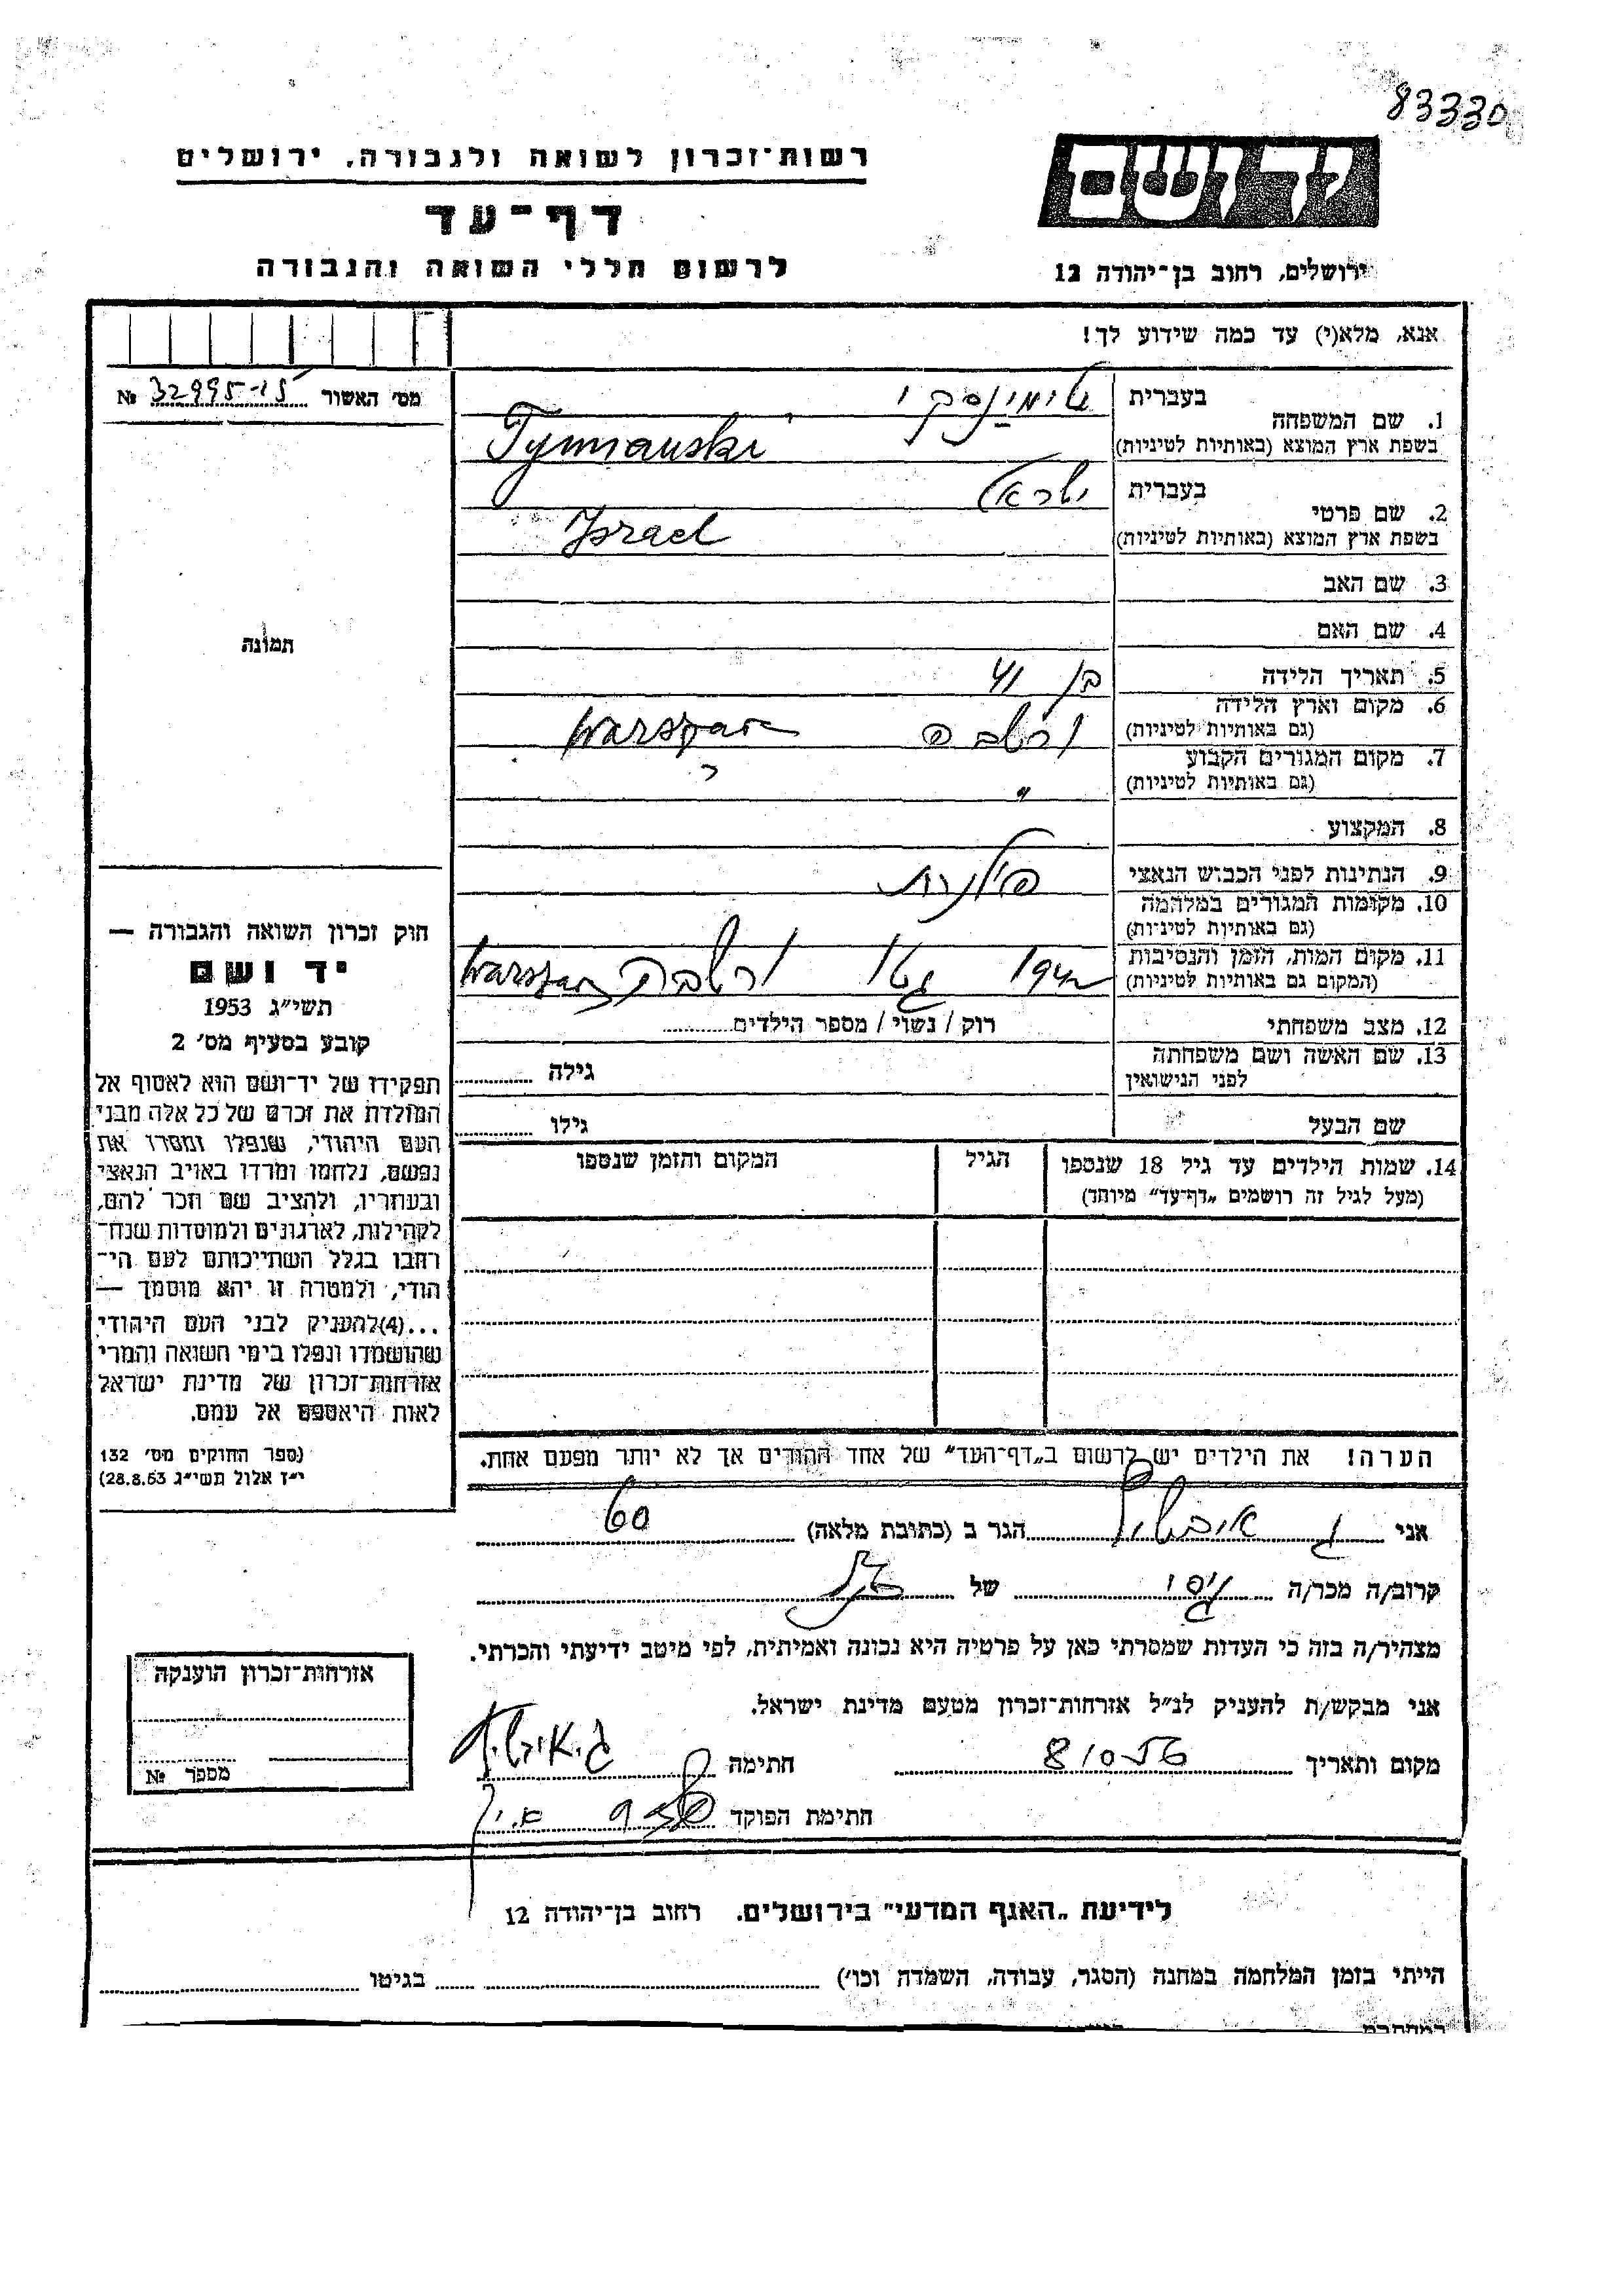 83330
רשות־זכרון לשואה ולגבורה, ירושלים
יד ושם
דף־עד
לרשום חללי השואה והגבורה
ירושלים, רחוב בן־יהודה 12
אנא, מלא(י) עד כמה שידוע לך!
מס׳ האשור 32995-15 №
1. שם המשפחה
בעברית
בשפת ארץ המוצא (באותיות לטיניות) Tymianski
2. שם פרטי
בעברית ישראל
בשפת ארץ המוצא (באותיות לטיניות) Israel
3. שם האב
4. שם האם
תמונה
5. תאריך הלידה בן 41
6. מקום וארץ הלידה
(גם באותיות לטיניות) ורשבה Warszawa
7. מקום המגורים הקבוע
(גם באותיות לטיניות) "
8. המקצוע
9. הנתינות לפני הכבוש הנאצי פולנית
10. מקומות המגורים במלחמה
(גם באותיות לטיניות)
11. מקום המות, הזמן והנסיבות
(המקום גם באותיות לטיניות) 1942 גטו ורשבה Warszawa
12. מצב משפחתי רוק / נשוי / מספר הילדים
13. שם האשה ושם משפחתה
לפני הנישואין גילה
שם הבעל גילו
חוק זכרון השואה והגבורה —
יד ושם
תשי״ג 1953
קובע בסעיף מס׳ 2
תפקידו של יד־ושם הוא לאסוף אל
המולדת את זכרם של כל אלה מבני
העם היהודי, שנפלו ומסרו את
נפשם, נלחמו ומרדו באויב הנאצי
ובעוזריו, ולהציב שם וזכר להם,
לקהילות, לארגונים ולמוסדות שנח־
רחבו בגלל השתייכותם לעם הי־
הודי, ולמטרה זו יהא מוסמך —
...(4)להעניק לבני העם היהודי
שהושמדו ונפלו בימי השואה והמרי
אזרחות־זכרון של מדינת ישראל
לאות היאספם אל עמם.
(ספר החוקים מס׳ 132
י״ז אלול תשי״ג 28.8.53)
14. שמות הילדים עד גיל 18 שנספו
(מעל לגיל זה רושמים „דף־עד״ מיוחד)
הגיל
המקום והזמן שנספו
הערה! את הילדים יש לרשום ב„דף־העד״ של אחד ההורים אך לא יותר מפעם אחת.
אני הגר ב (כתובת מלאה) 60
קרוב/ה מכר/ה גיסו של
מצהיר/ה בזה כי העדות שמסרתי כאן על פרטיה היא נכונה ואמיתית, לפי מיטב ידיעתי והכרתי.
אני מבקש/ת להעניק לנ״ל אזרחות־זכרון מטעם מדינת ישראל.
מקום ותאריך 81056 חתימה
חתימת הפוקד
אזרחות־זכרון הוענקה
מספר №
לידיעת „האגף המדעי״ בירושלים. רחוב בן־יהודה 12
הייתי בזמן המלחמה במחנה (הסגר, עבודה, השמדה וכו׳) בגיטו